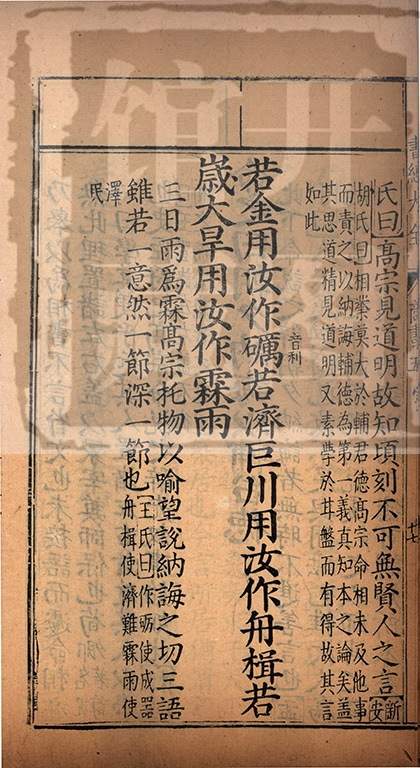 氏曰高宗見道明故知頃刻不可無賢人之言新安
胡氏曰相業莫大於輔君德高宗命相未及他事
而責之以納誨輔德為第一義真知本之論矣盖
其思道精見道明又素學於甘盤而有得故其言
如此
若金用汝作礪若濟巨川用汝作舟楫若
音利
歲大旱用汝作霖雨
三日雨為霖髙宗托物以喻望說納誨之切三語
雖若一意然一節深一節也王氏曰作礪使成器
舟楫使濟難霖雨使
澤民